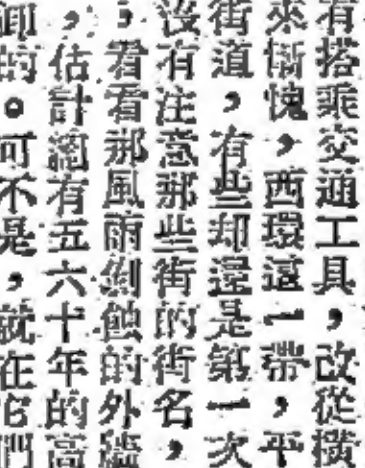 有搭乘交通工具，改從橫
來慚愧，西環這一帶，平
街道，有些却還是第一次
沒有注意那些街的街名，
；看看那風雨剝蝕的外牆
，估計總有五六十年的高
卸的。可不是，就在它們